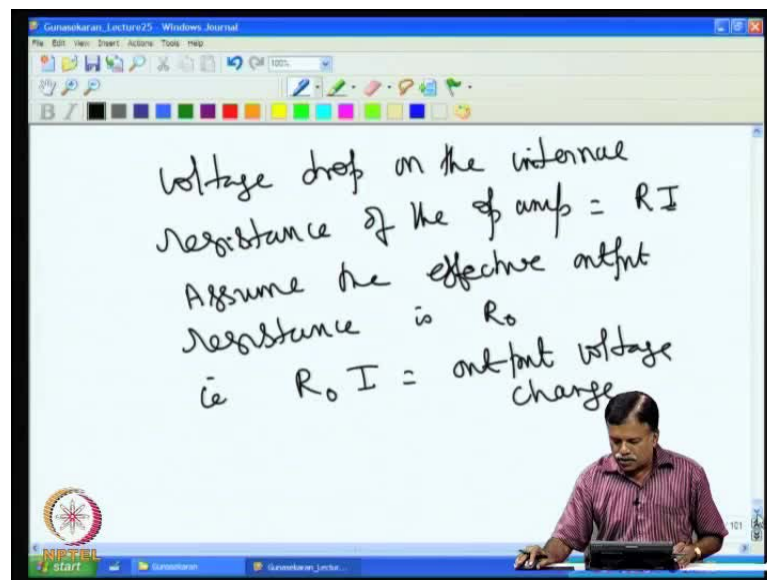 Gunasekaran_Lecture25 - Windows Journal
File Edit View Insert Actions Tools Help
100%
B I
Voltage drop on the internal
resistance of the op amp = RI
Assume the effective output
resistance is R₀
ie R₀ I = output voltage
change
101
NPTEL
start Gunasekaran Gunasekaran_Lectur...